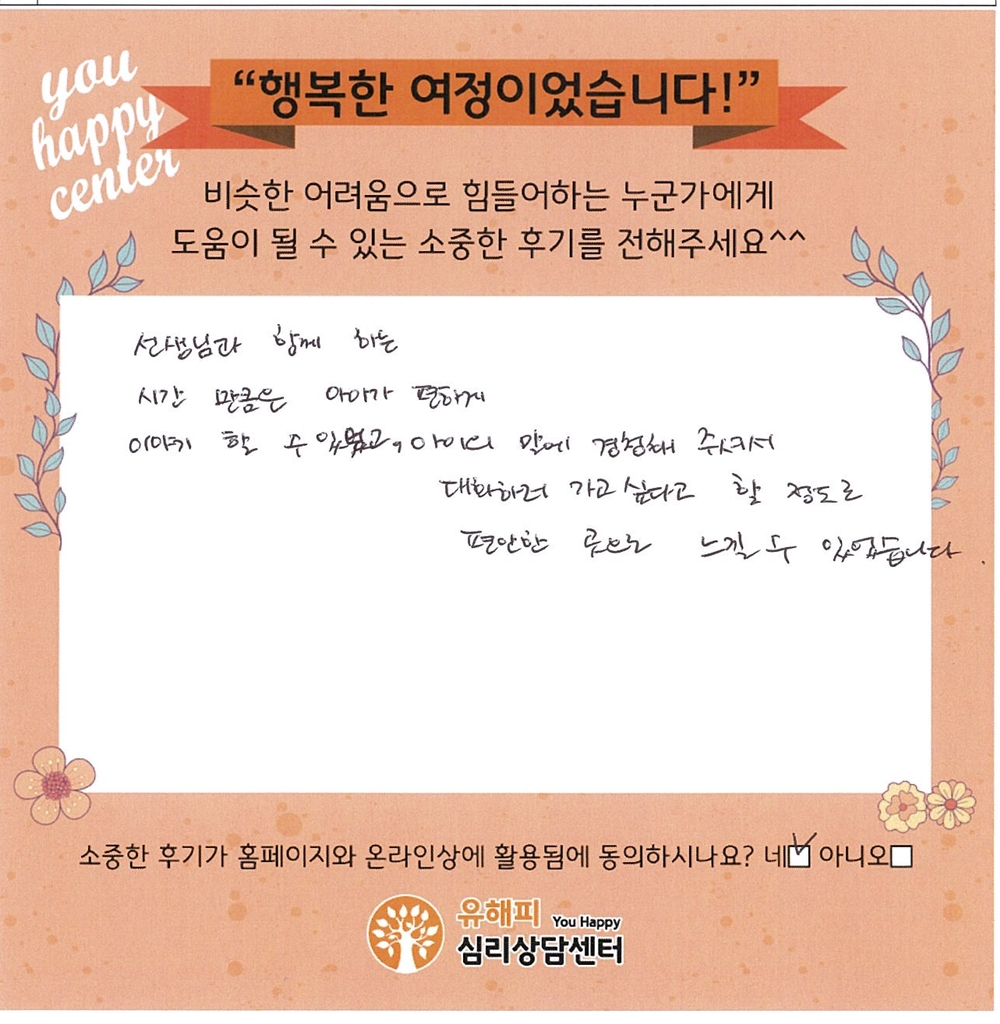 you
happy
center
“행복한 여정이었습니다!”
비슷한 어려움으로 힘들어하는 누군가에게
도움이 될 수 있는 소중한 후기를 전해주세요^^
선생님과 함께 하는
시간 만큼은 아이가 편하게
이야기 할 수 있었고, 아이의 말에 경청해 주셔서
대화하러 가고 싶다고 할 정도로
편안한 곳으로 느낄 수 있었습니다.
소중한 후기가 홈페이지와 온라인상에 활용됨에 동의하시나요? 네☑ 아니오☐
유해피 You Happy
심리상담센터